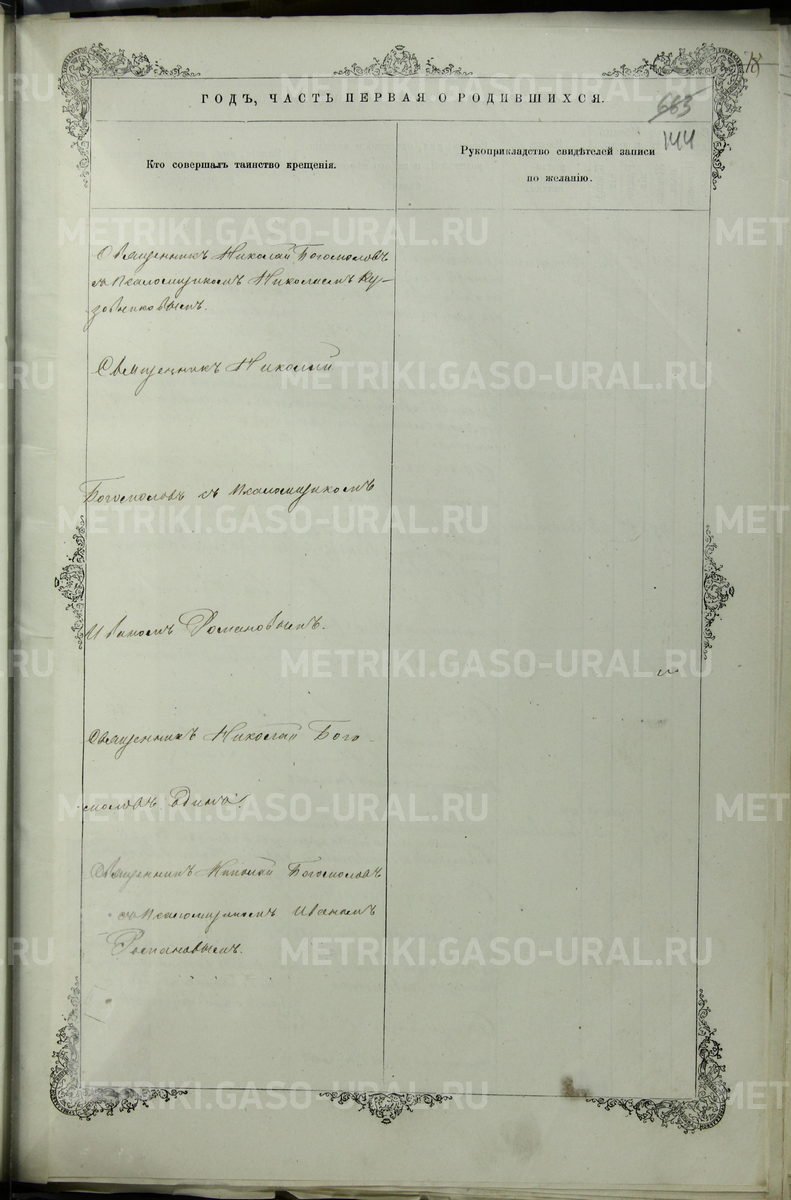 18
ГОДЪ, ЧАСТЬ ПЕРВАЯ О РОДИВШИХСЯ.
663
144
Кто совершалъ таинство крещенія.
Рукоприкладство свидѣтелей записи
по желанію.
Священникъ Николай Богомоловъ
съ псаломщикомъ Николаемъ Ку-
зовниковымъ.
Священникъ Николай
Богомоловъ съ псаломщикомъ
Иваномъ Романовымъ.
Священникъ Николай Бого-
моловъ одинъ.
Священникъ Николай Богомоловъ
съ псаломщикомъ Иваномъ
Романовымъ.
METRIKI.GASO-URAL.RU